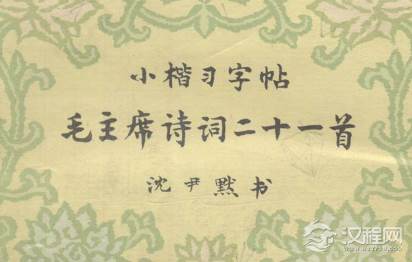 小楷习字帖
毛主席诗词二十一首
沈尹默书
汉程网